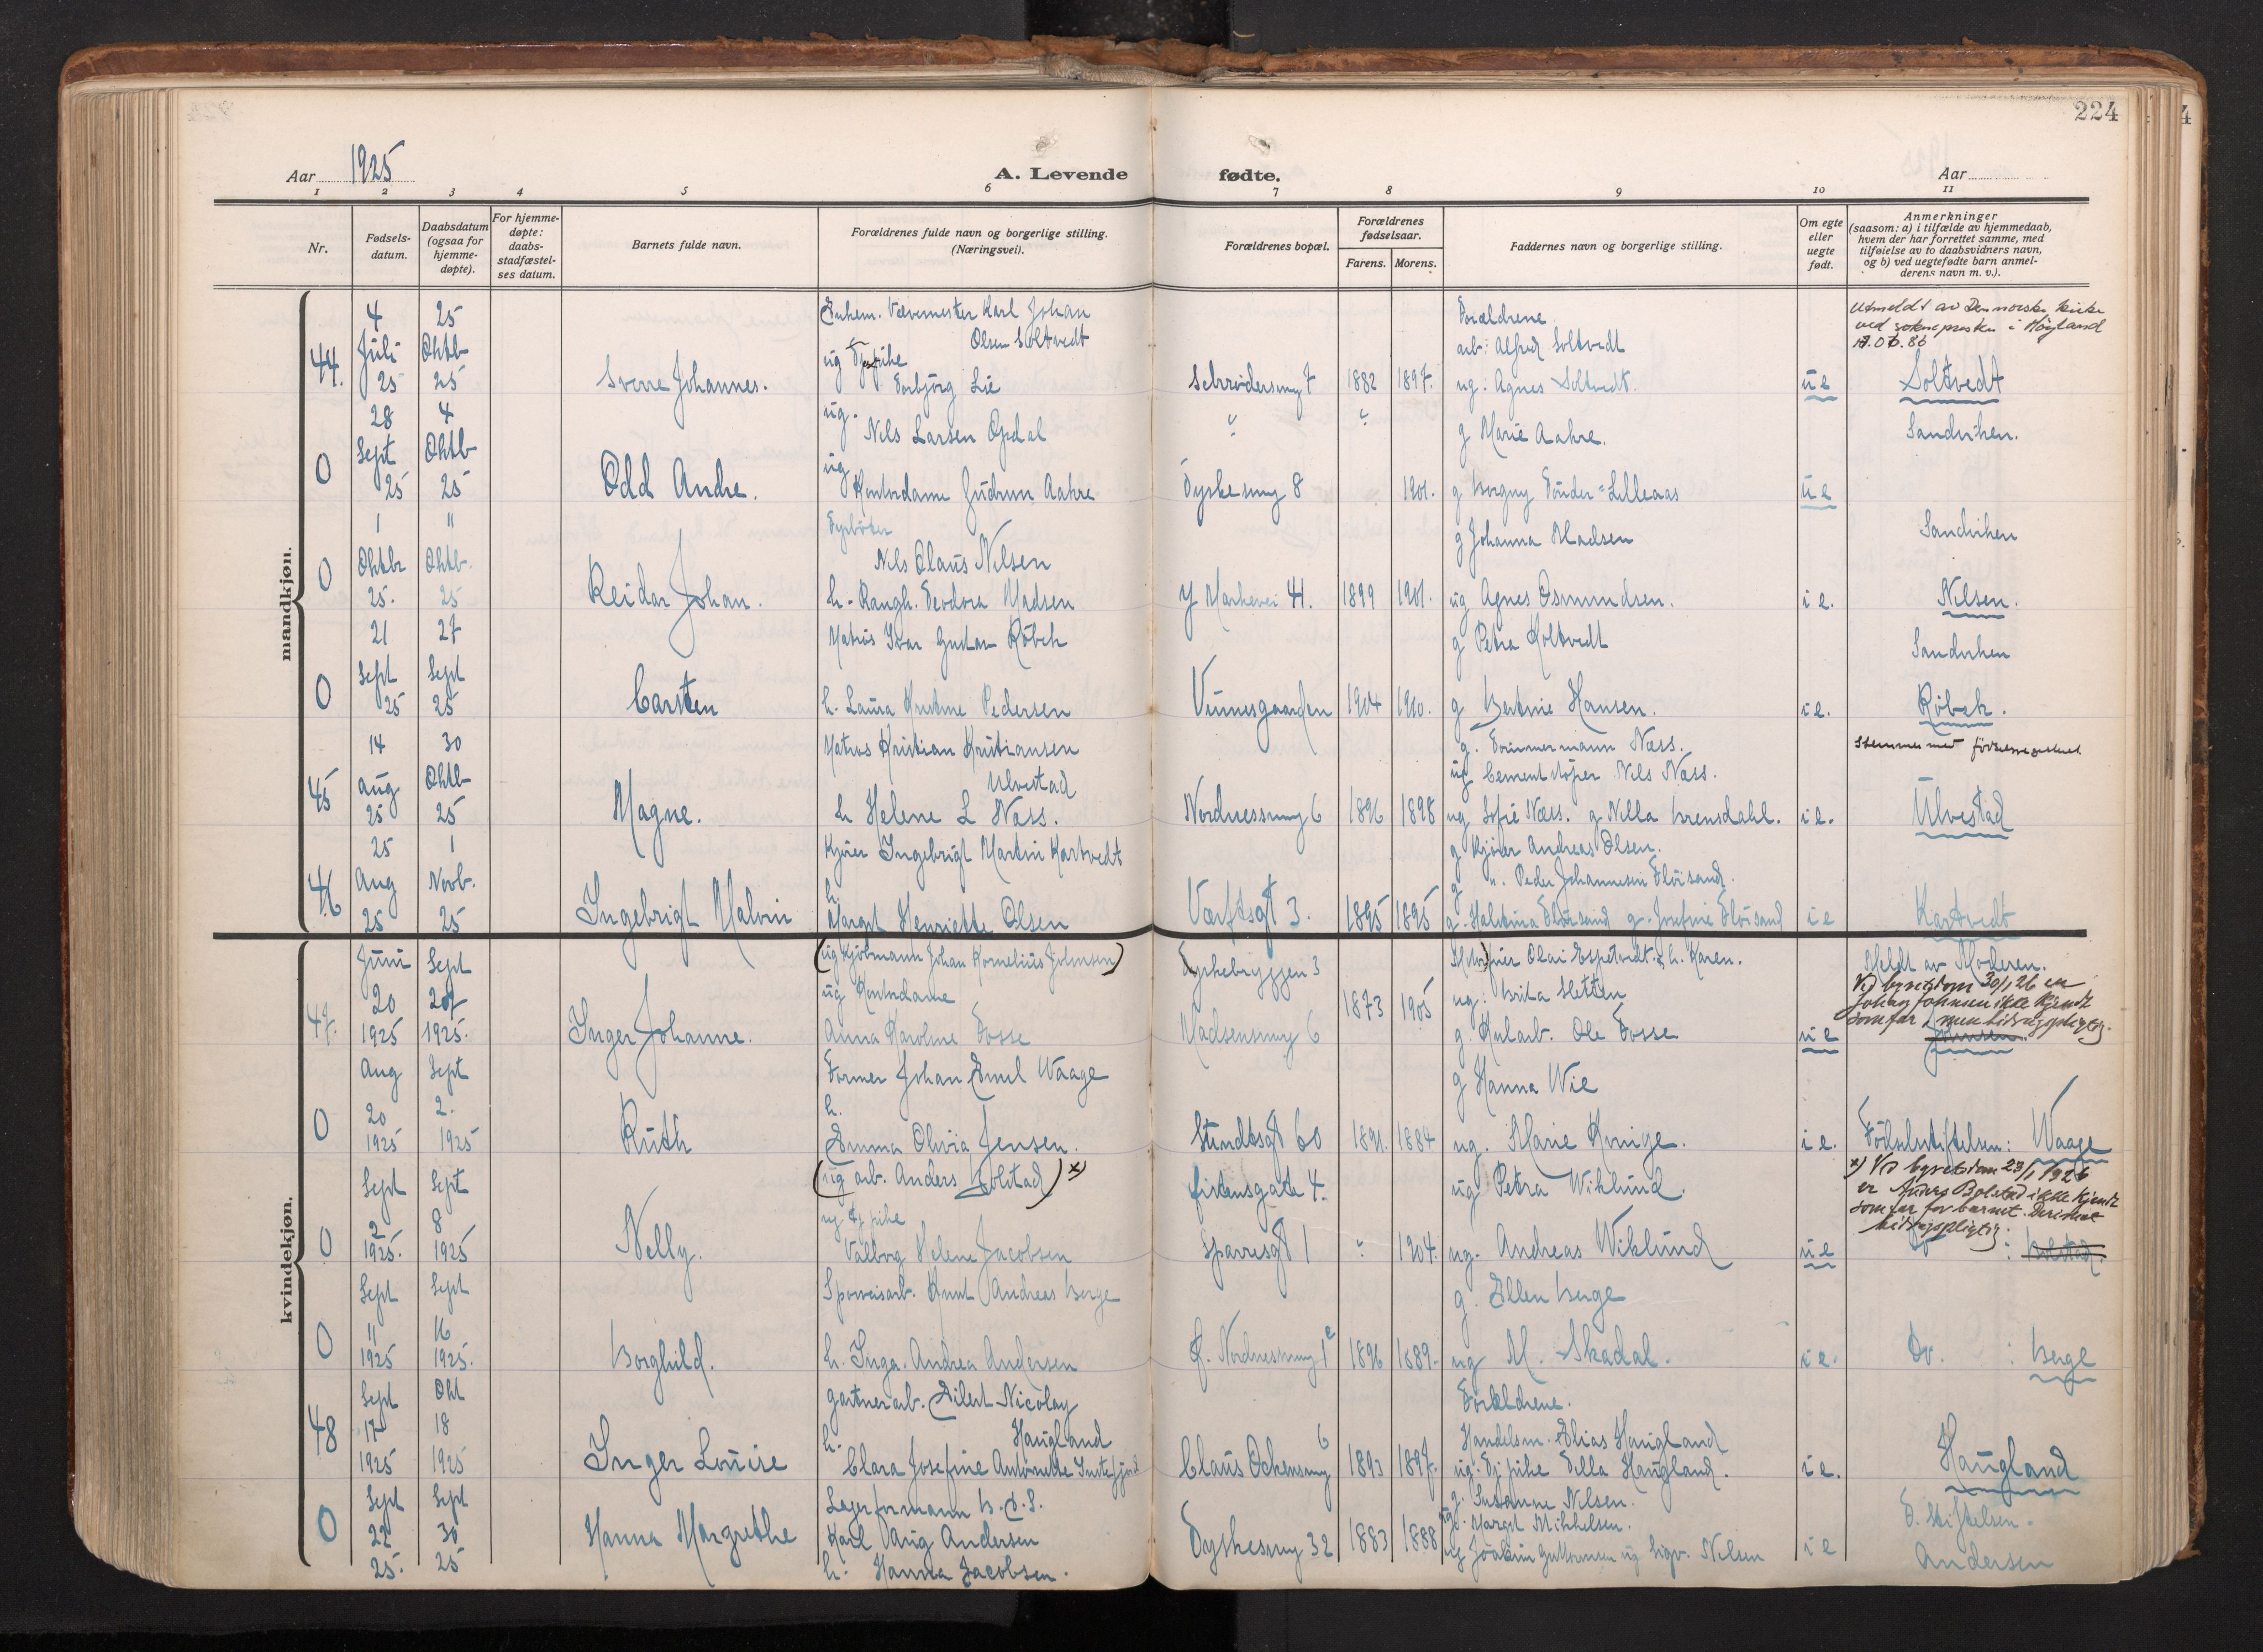 224
Aar 1925
A. Levende fødte.
Aar
1 2 3 4 5 6 7 8 9 10 11
Nr.
Fødsels-
datum.
Daabsdatum
(ogsaa for
hjemme-
døpte).
For hjemme-
døpte:
daabs-
stadfæstel-
ses datum.
Barnets fulde navn.
Forældrenes fulde navn og borgerlige stilling.
(Næringsvei).
Forældrenes bopæl.
Forældrenes
fødselsaar.
Farens. Morens.
Faddernes navn og borgerlige stilling.
Om egte
eller
uegte
født.
Anmerkninger
(saasom: a) i tilfælde av hjemmedaab,
hvem der har forrettet samme, med
tilføielse av to daabsvidners navn,
og b) ved uegtefødte barn anmel-
derens navn m. v.).
mandkjøn.
44.
4
Juli
25
25
Oktb
25
Sverre Johannes.
Enkem. Vævemester Karl Johan
Olsen Soltvedt
ug
Torbjørg Lie
1882 1897.
Forældrene
arb: Alfred Soltvedt
ug: Agnes Soltvedt.
u e
Utmeldt av Den norske kirke
ved soknepresten i Høyland
Soltvedt
0
28
Sept
25
4
Oktb
25
Odd Andre.
ug.
Nils Larsen Opdal
ug
Kontordame Gudrun Aakre
Tyskesmug 8
1901.
g Marie Aakre.
g Borgny Tønder=Lilleaas
u e
Sandviken.
0
1
Oktbr
25.
"
Oktb.
25
Reidar Johan.
Fyrbøter
Nils Olaus Nilsen
h. Rangh. Teodora Madsen
Y Markevei 41.
1899 1901.
g Johanna Madsen
ug Agnes Osmundsen.
i e.
Sandviken
Nilsen.
0
21
Sept
25
27
Sept
25
Carsten
Matros Ivar Gustav Röbek
h. Laura Kristine Pedersen
Vinnesgaarden
1904 1900.
g Petra Holtvedt
g Bertine Hansen.
i e.
Sandviken
Röbek.
45
14
Aug
25
30
Oktb
25
Magne.
Matros Kristian Kristiansen
Ulvestad
h Helene L Næss.
Nordnessmug 6
1896 1898
g. Tømmermann Næss.
ug Cementstøper Nils Næss.
ug Sofie Næss. g Nilla Svensdahl.
i e.
Stemmer med fødselsregisteret
Ulvestad
46
25
Aug
25
1
Novb.
25
Ingebrigt Malvin
Kjører Ingebrigt Martin Kartvedt
h.
Margit Henriette Olsen
Værftsgt 3.
1895 1895
g Kjører Andreas Olsen.
g ". Peder Johannesen Fløisand.
g. Halvtina Fløisand g. Josefine Fløisand
i e
Kartvedt
kvindekjøn.
47.
Juni
20
1925
Sept
27
1925.
Inger Johanne.
(ug Kjøbmann Johan Kornelius Johnsen)
ug Kontordame
Anna Karoline Fosse
Tyskebryggen 3
Madsensmug 6
1873 1905
Olai Espetvedt. h. Karen.
ug: Brita Sletten
g. Kularb. Ole Fosse
u e
Meldt av Moderen.
Ved byretsdom 30/1 26 er
Johan Johnsen ikke kjendt
som far, men bidragspligtig.
Johnsen.
0
Aug
20
1925
Sept
2.
1925
Ruth
Former Johan Emil Waage
h.
Emma Olivia Jensen.
Stundtsgt 60
1891. 1884
g Hanna Wie
ug. Marie Kninge.
i e.
Fødselsstiftelsen: Waage
0
Sept
2
1925.
Sept
8
1925
Nelly.
(ug arb. Anders Bolstad) x)
ug Tj pike
Valborg Helene Jacobsen
Sparresgt 1
1904.
ug Petra Wiklund.
ug. Andreas Wiklund
u e
x) Ved byretsdom 29/1 1926
er Anders Bolstad ikke kjendt
som far for barnet. Derimot
bidragspligtig.
Do : Bolstad.
0
Sept
11
1925
Sept
16
1925.
Borghild.
Sporveisarb. Knut Andreas Berge
h. Inga Andrea Andersen
1896 1889.
g. Ellen Berge
ug M. Skadal.
i e.
Do. : Berge
48
Sept
17
1925
Okt
18
1925
Inger Louise
Gartnerarb. Eilert Nicolay
Haugland
h.
Clara Josefine Antonette Instefjord
Claus Ockensmug 6
1893 1897.
Forældrene.
Handelsm. Elias Haugland
ug. Tj pike Tella Haugland.
i e.
Haugland
0
Sept
22
25.
Sept
30
25
Hanna Margrethe
Lagerformann B. D. S.
Karl Aug Andersen
h. Hanna Jacobsen.
Tyskesmug 32
1883 1888
g. Susanne Nilsen.
ug. Margit Mikkelsen.
ug Joakim Guttormsen ug Sigv. Nilsen
i e
F. Stiftelsen.
Andersen